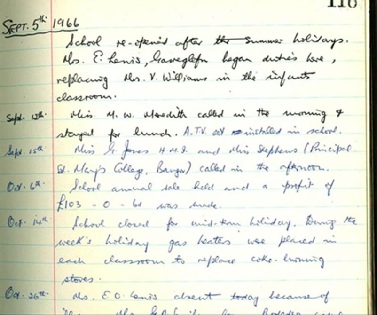 116
SEPT. 5th 1966
School re-opened after the Summer holidays.
Mrs. E. Lewis, Gaveglefn began duties here,
replacing Mrs. V. Williams in the infants
classroom.
Sept. 12th. Miss M. W. Meredith called in the morning &
stayed for lunch. A T.V. set installed in school.
Sept. 15th. Miss G. Jones H.M.I. and Miss Stephens (Principal
St. Mary's College, Bangor) called in the afternoon.
Oct. 6th. School annual sale held and a profit of
£103 - 0 - 6d was made.
Oct. 14th School closed for mid-term holiday. During the
week's holiday gas heaters were placed in
each classroom to replace coke-burning
stoves.
Oct. 26th. Mrs. E. O. Lewis absent today because of